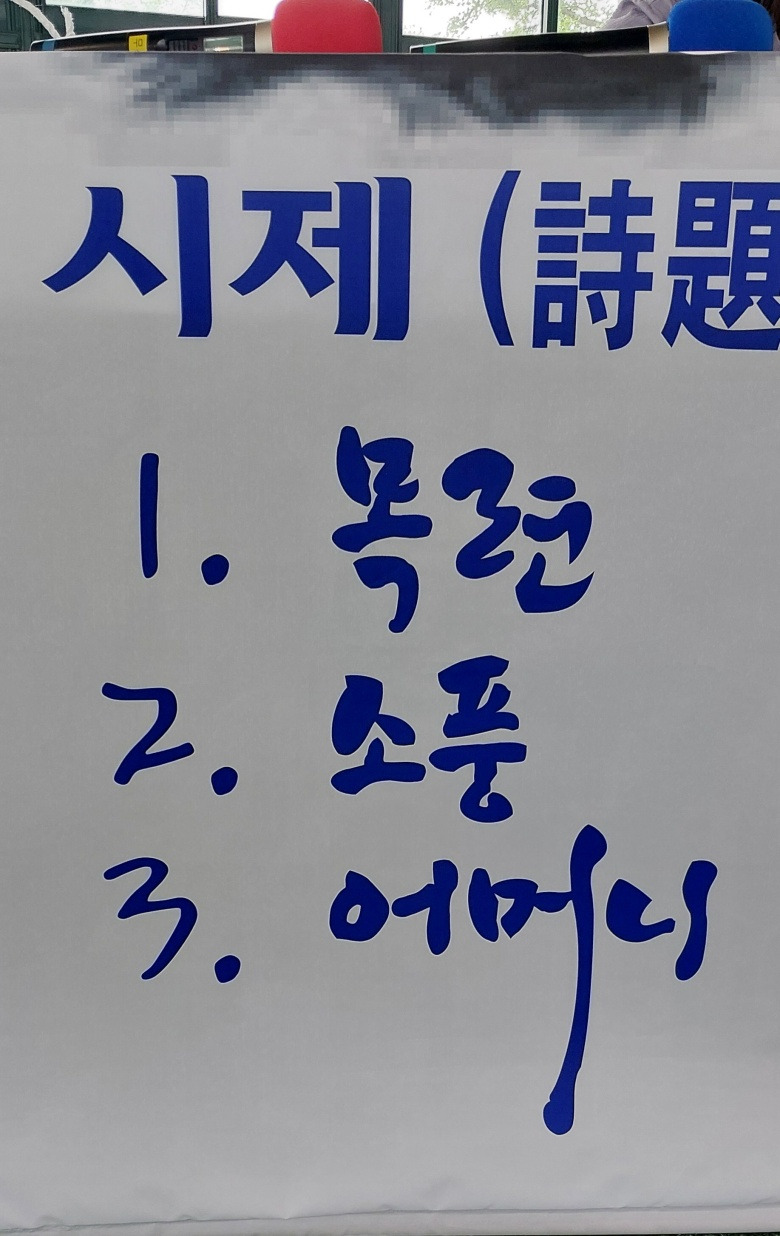 시제 (詩題
1. 목련
2. 소풍
3. 어머니